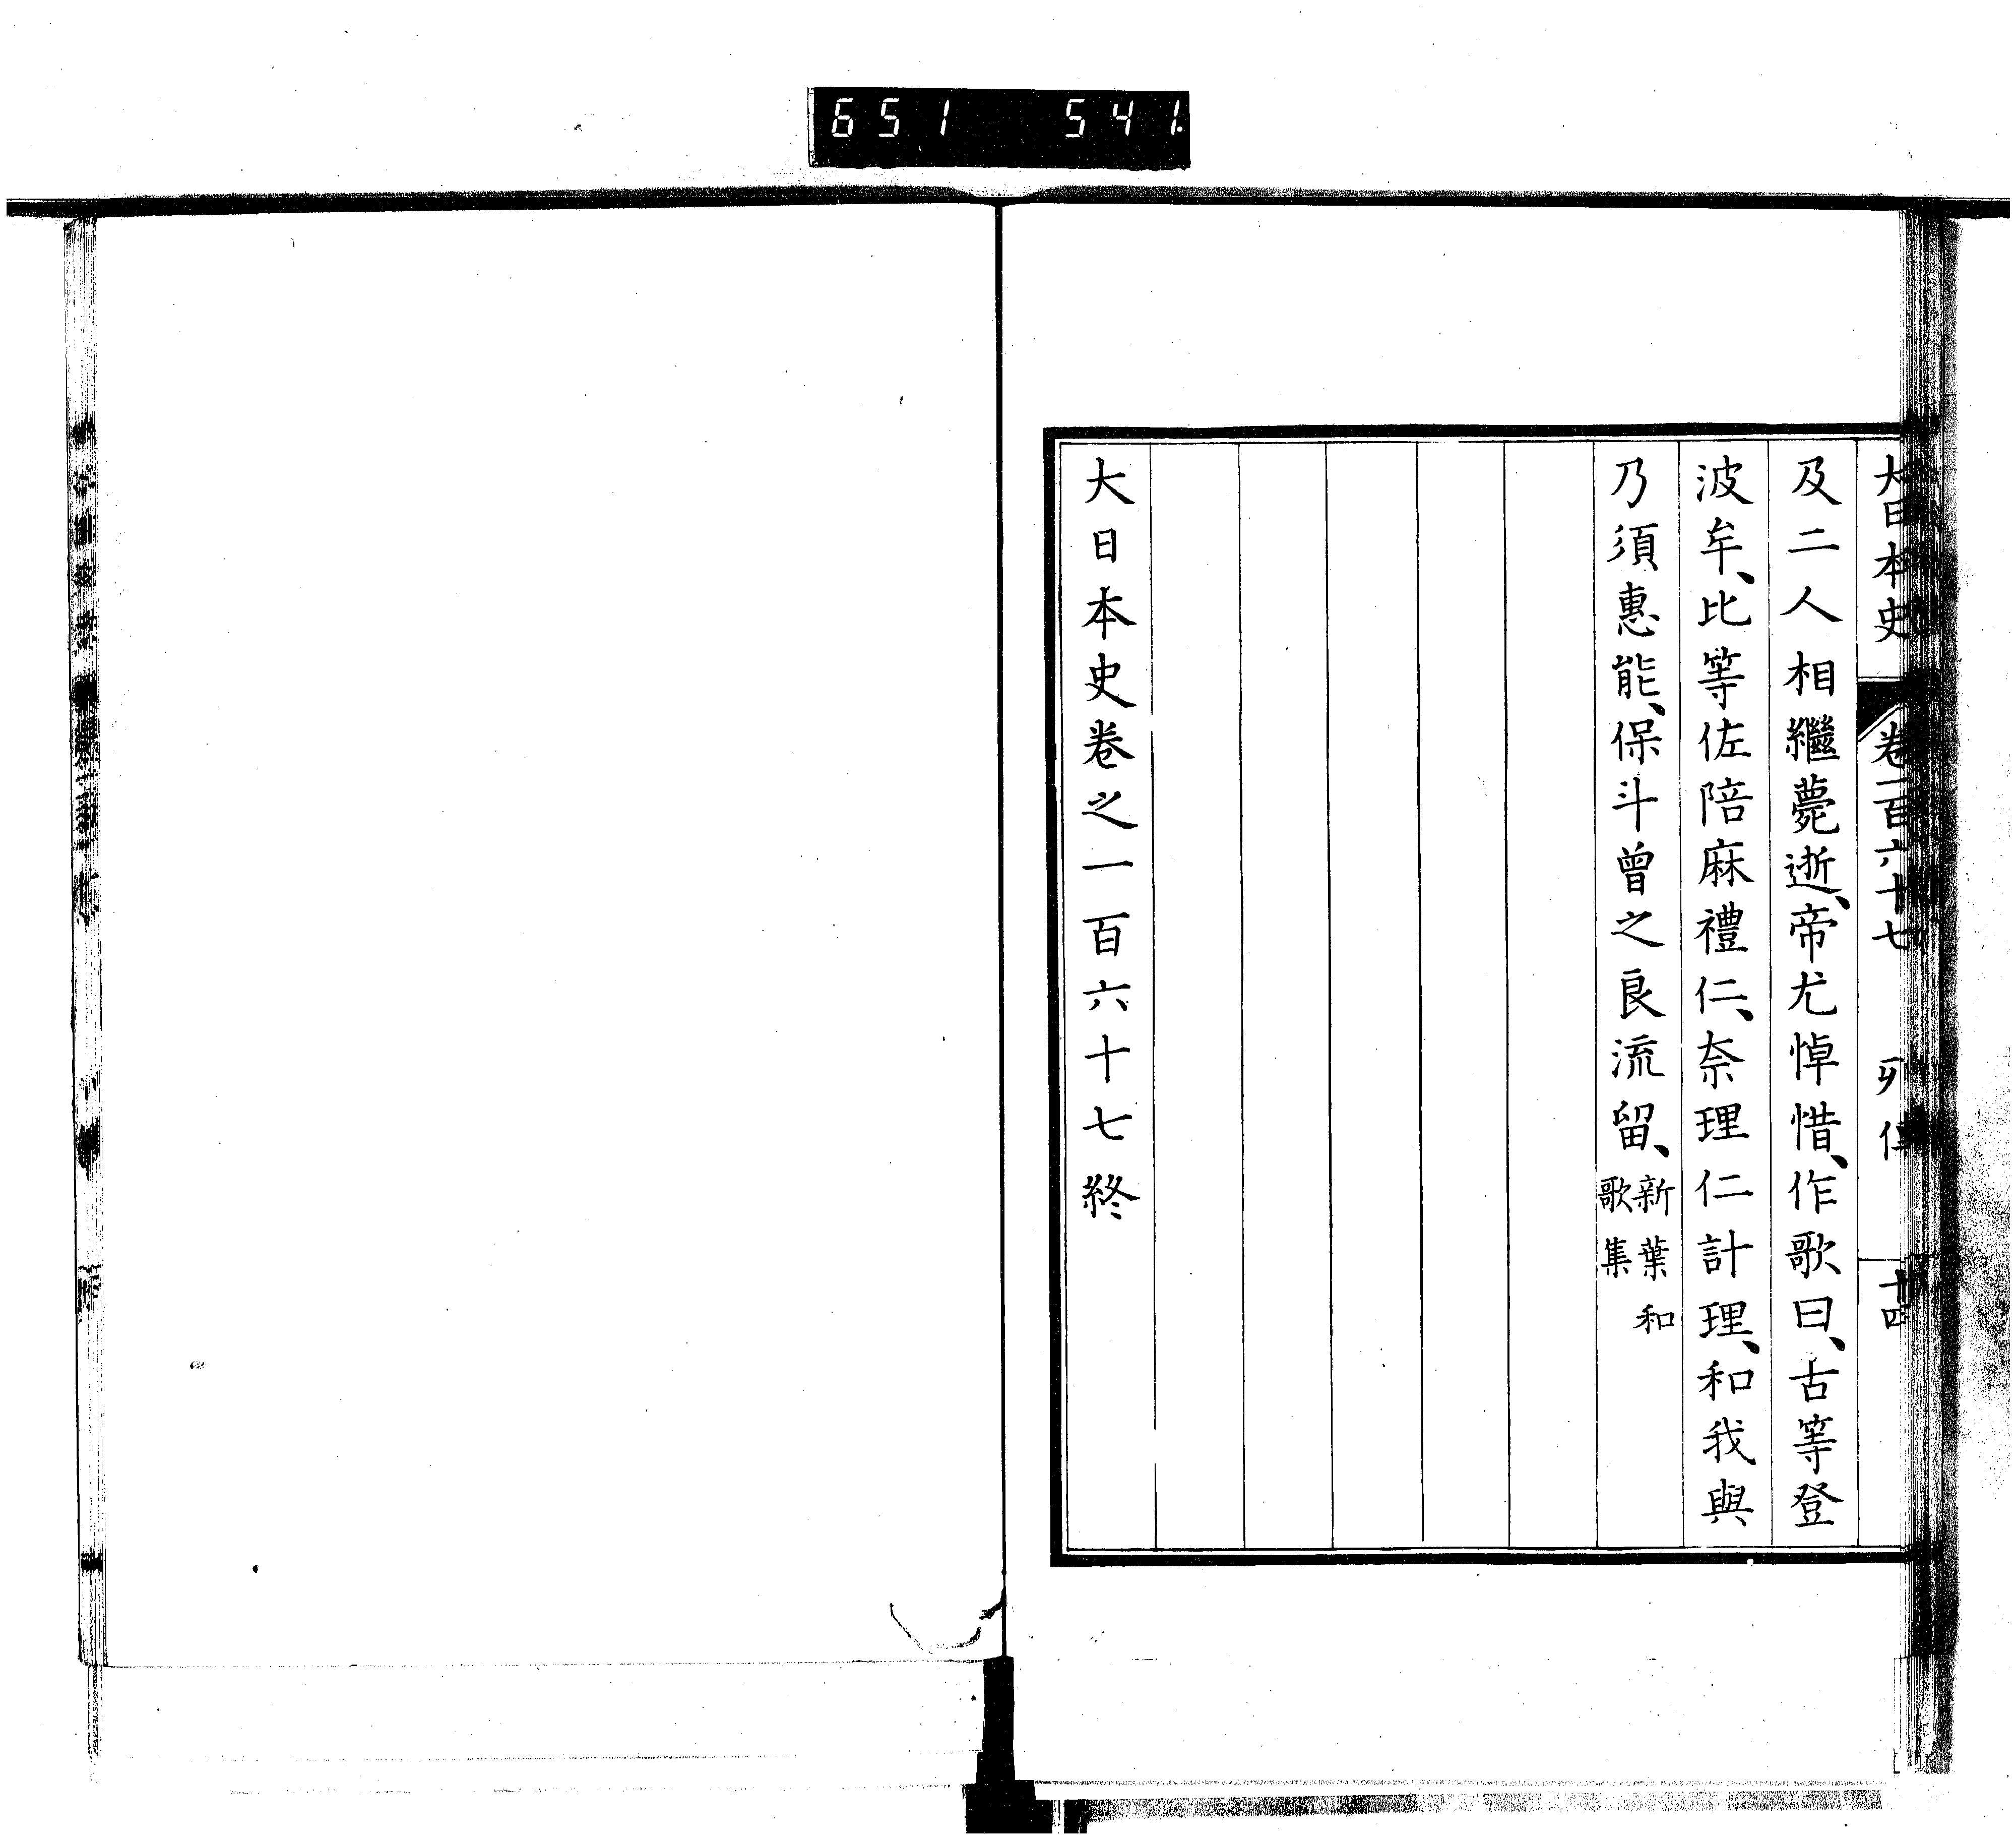 651 541
大日本史 卷一百六十七 列傳 十四
及二人相繼薨逝、帝尤悼惜、作歌曰、古等登
波牟、比等佐陪麻禮仁、奈理仁計理、和我與
乃須惠能、保斗曾之良流留、新葉和
歌集
大日本史卷之一百六十七終